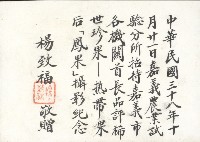 中華民國三十八年十
月廿一日嘉義農業試
驗分所招待嘉義市
各機關首長品評稀
世珍果—熱帶果
后「鳳果」攝影紀念
楊致福 敬贈